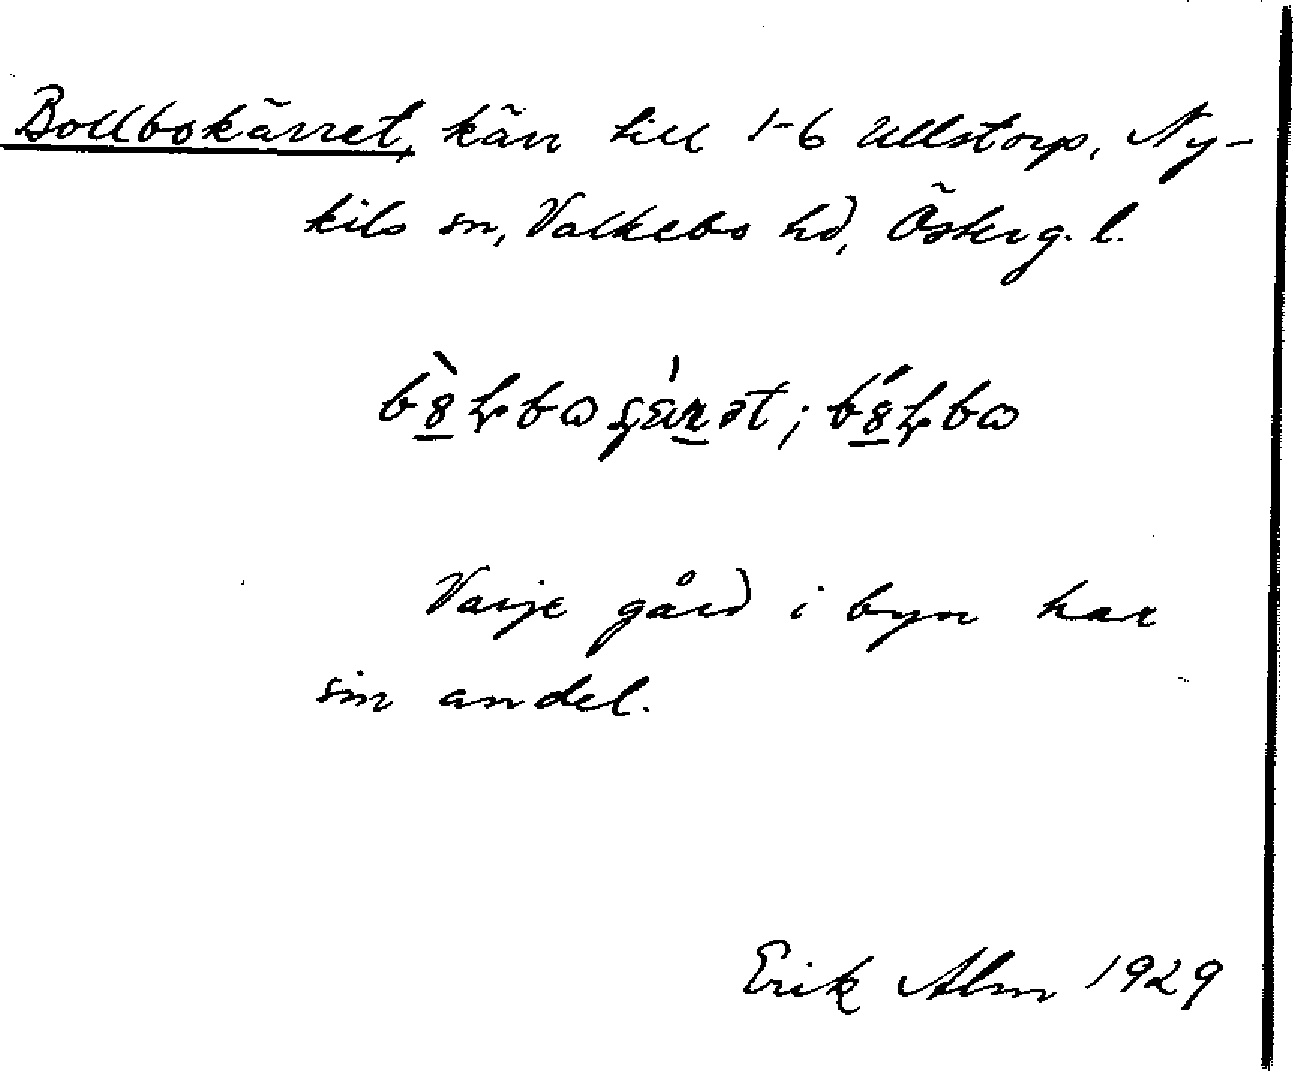 Bollbokärret, kärr till 1-6 Ullstorp, Ny-
kils sn, Valkebo hd, Österg. l.
Varje gård i byn har
sin andel.
Erik Alm 1929